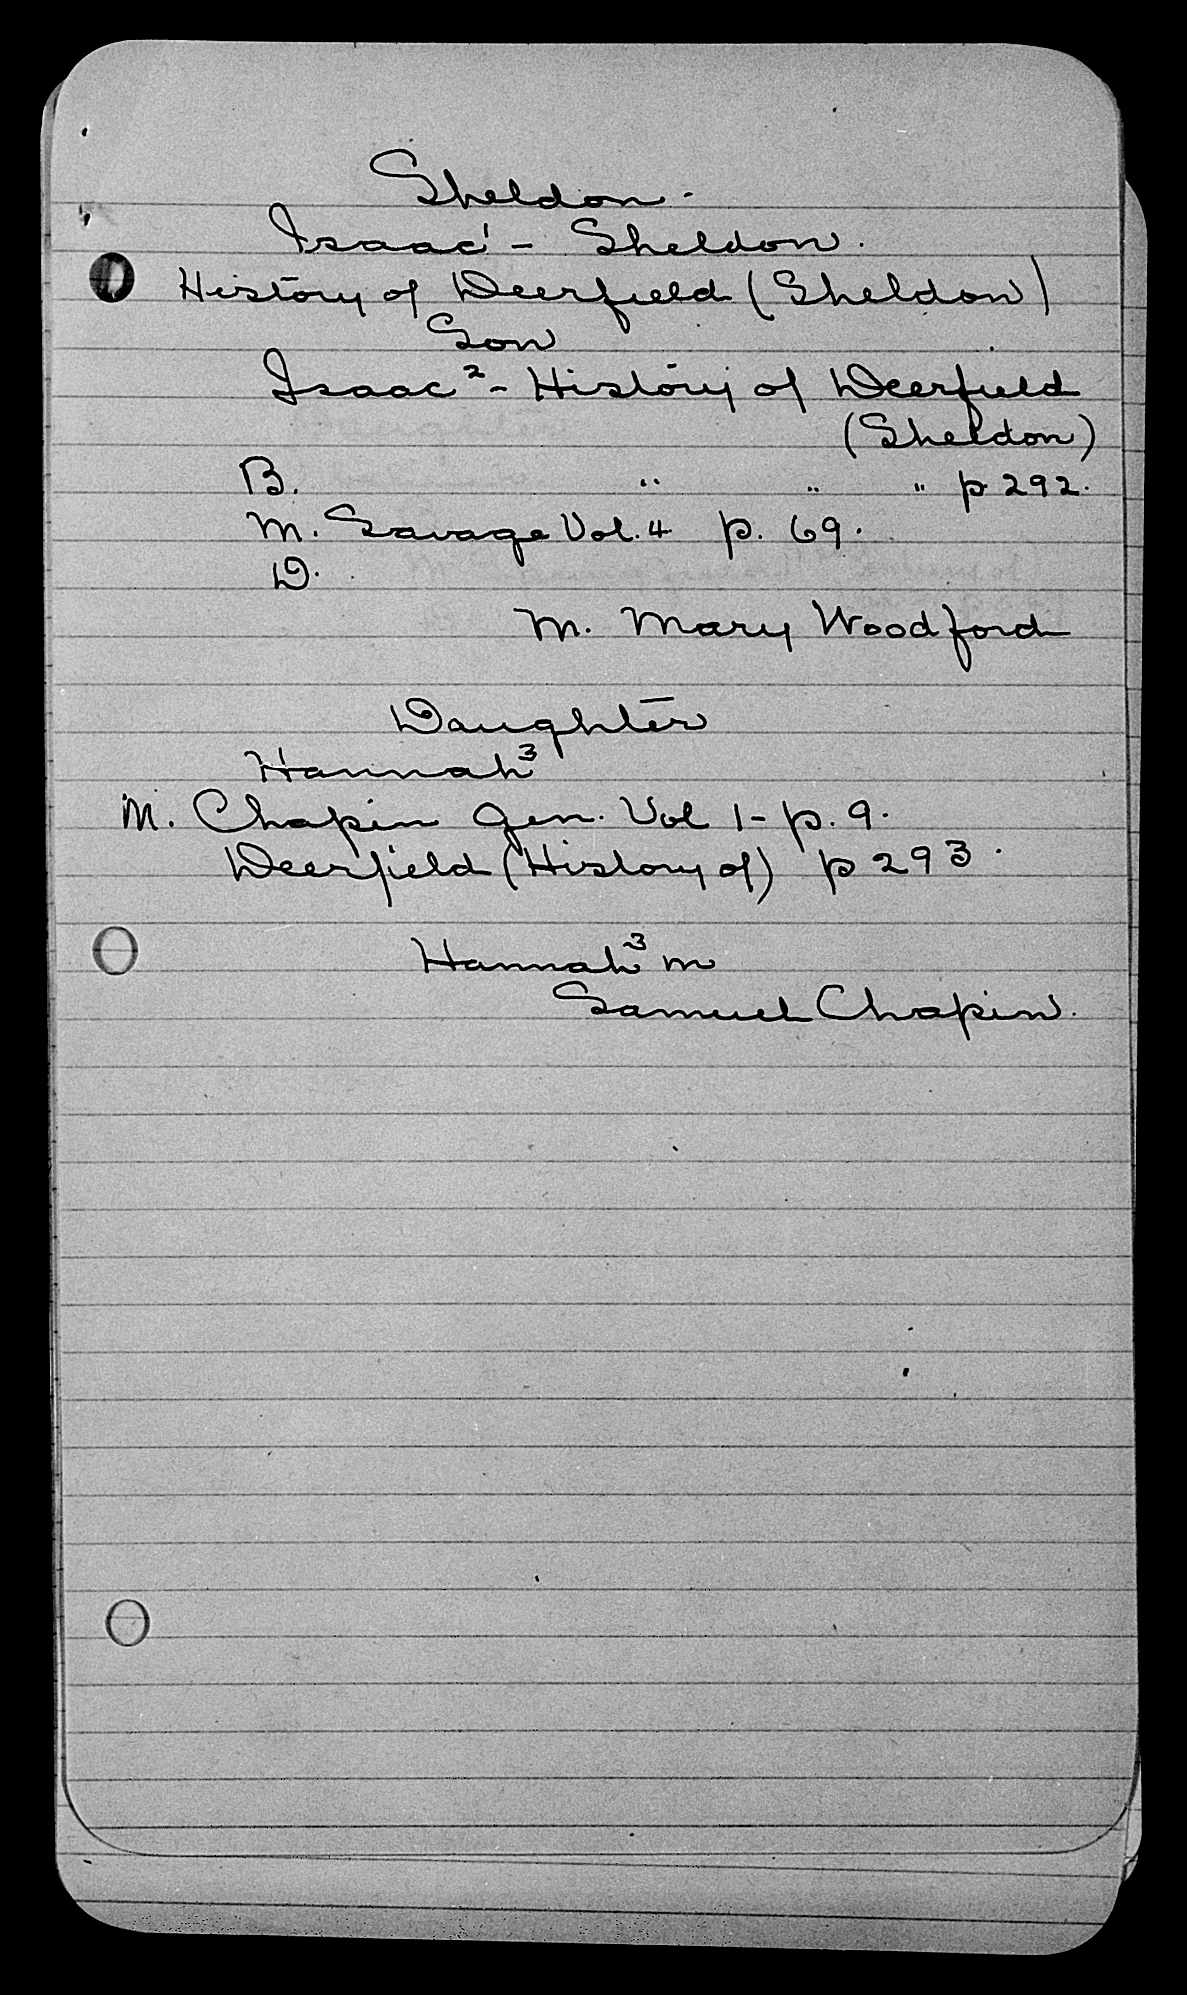 Sheldon.
Isaac¹ - Sheldon.
History of Deerfield (Sheldon)
Son
Isaac² - History of Deerfield
(Sheldon)
B. " " " p 292.
M. Savage Vol. 4 p. 69.
D.
M. Mary Woodford
Daughter
Hannah³
M. Chapin Gen. Vol 1 - p. 9.
Deerfield (History of) p 293.
Hannah³ m
Samuel Chapin.